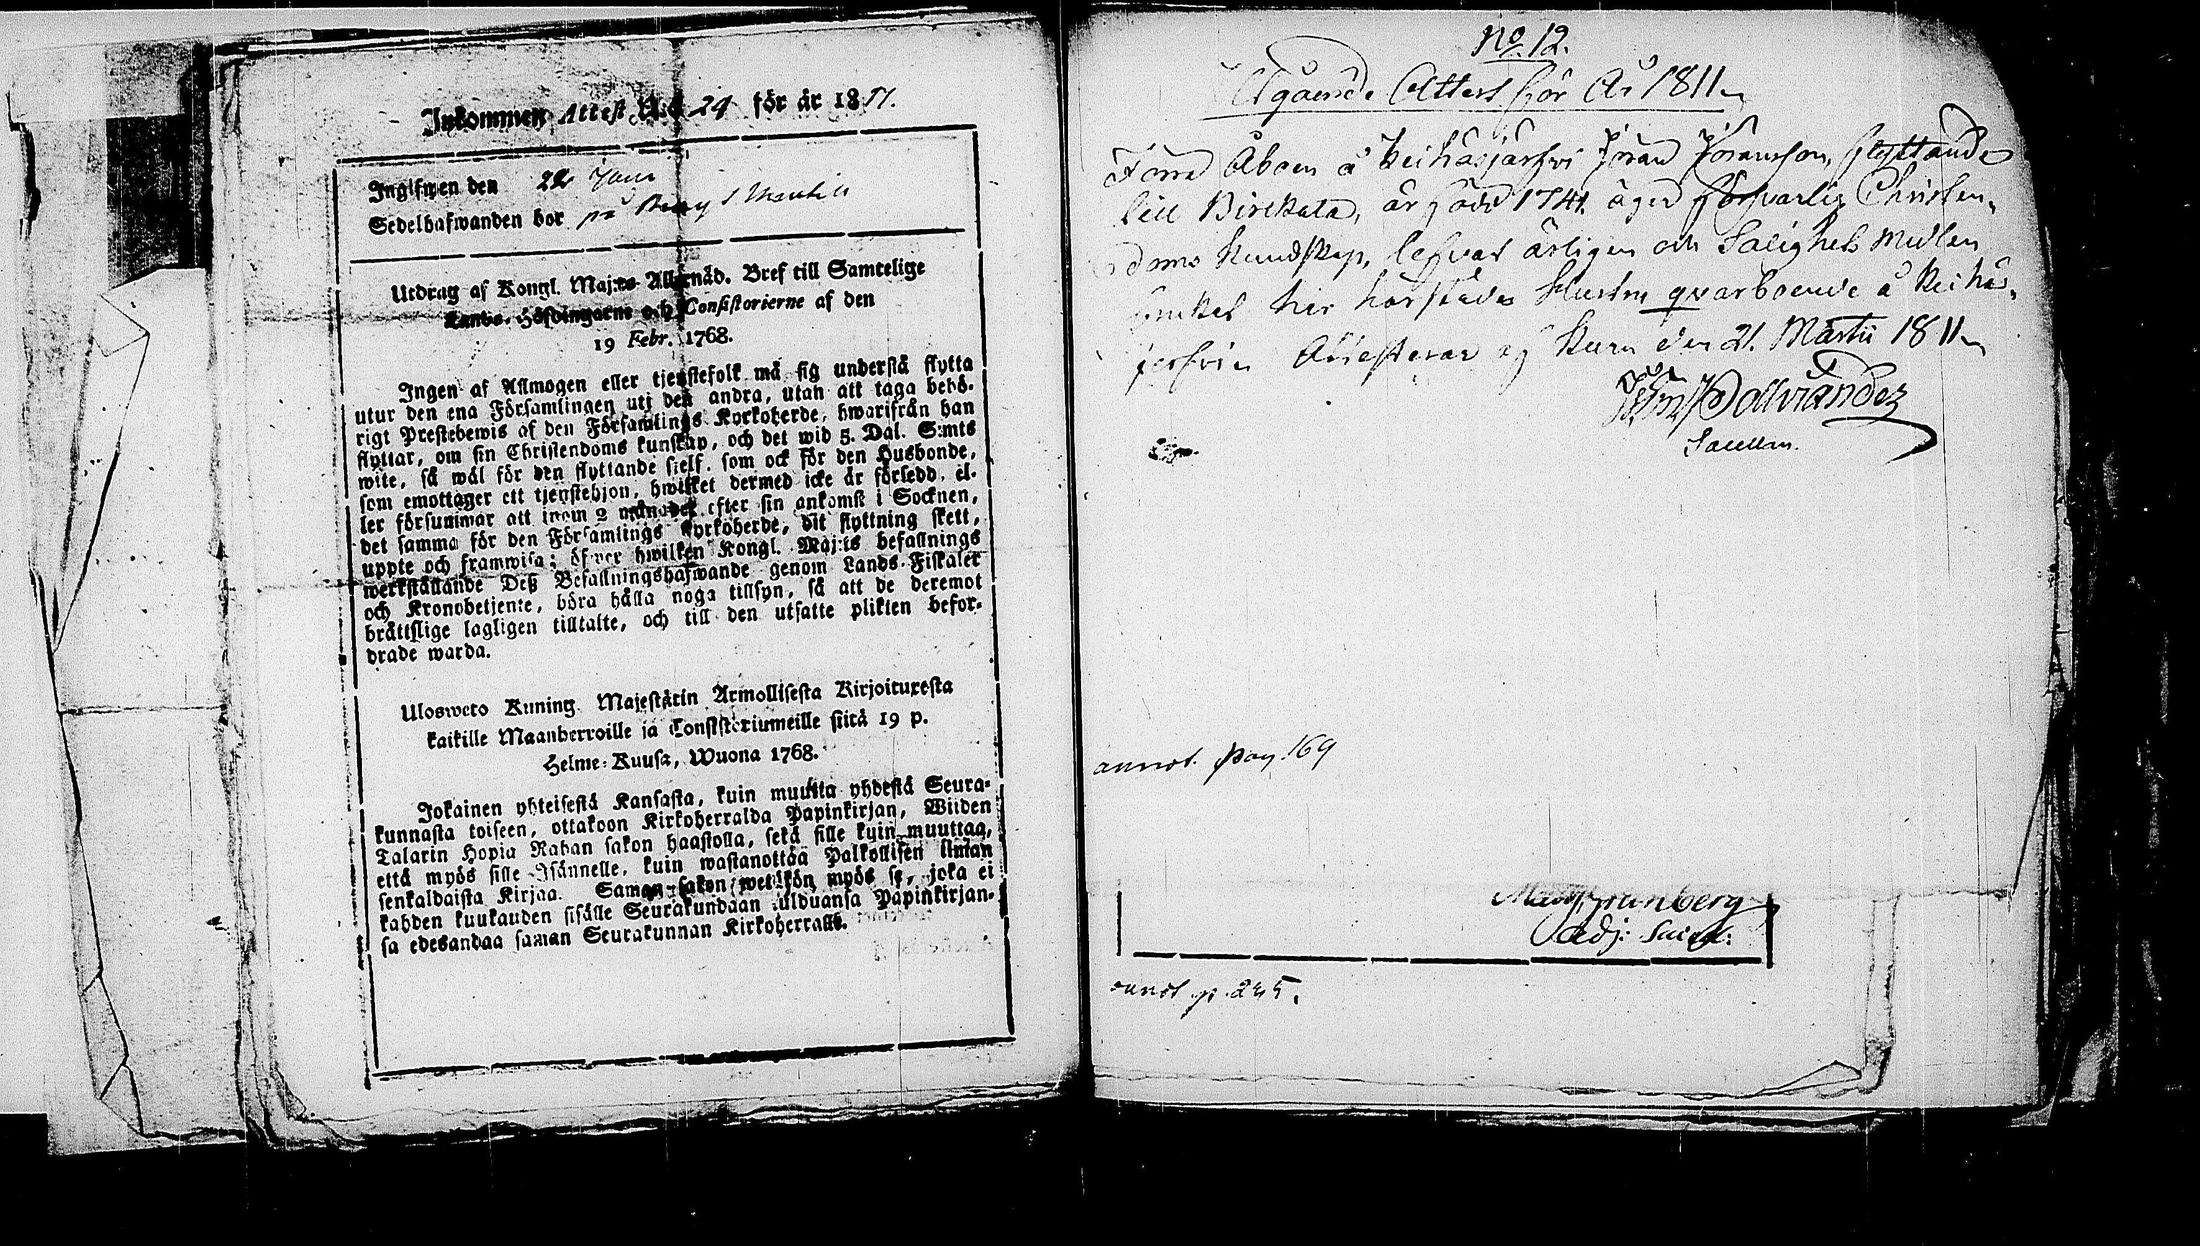 Inkommen Attest N:o 24 för år 1811.
Ingifwen den 22 Junii
Sedelhafwanden bor på
Utdrag af Kongl. Maj:ts Allernåd. Bref till Samtelige
Lands-Höfdingarne och Consistorierne af den
19 Febr. 1768.
Ingen af Allmogen eller tjenstefolk må sig understå flytta
utur den ena Församlingen uti den andra, utan att taga behö-
rigt Prestebewis af den Församlings Kyrkoherde, hwarifrån han
flyttar, om sin Christendoms kunskap, och det wid 5. Dal. S:mts
wite, så wäl för den flyttande sielf, som ock för den Husbonde,
som emottager ett tjenstehjon, hwilket dermed icke är försedd, el-
ler försummar att inom 2 månader efter sin ankomst i Socknen,
det samma för den Församlings Kyrkoherde, dit flyttning skett,
uppte och framwisa; öfwer hwilken Kongl. Maj:ts befallnings
werkställande Deß Befallningshafwande genom Lands-Fiskaler
och Kronobetjente, böra hålla noga tillsyn, så att de deremot
brättslige lagligen tilltalte, och till den utsatte plikten befor-
drade warda.
Ulosweto Kuning. Majestätin Armollisesta Kirjoituxesta
kaikille Maanherroille ja Consistoriumeille siitä 19 p.
Helme-Kuusa, Wuona 1768.
Jokainen yhteisestä Kansasta, kuin muutta yhdestä Seura-
kunnasta toiseen, ottakoon Kirkoherralda Papinkirjan, Wiiden
Talarin Hopia Rahan sakon haastolla, sekä sille kuin muuttaa,
että myös sille Isännelle, kuin wastanottaa Palkollisen ilman
senkaldaista Kirjaa. Saman sakon wetäkön myös se, joka ei
kahden kuukauden sisälle Seurakundaan tulduansa Papinkirjan-
sa edesandaa saman Seurakunnan Kirkoherralle.
No. 12.
Utgående Attest för År 1811
Förra Åboen å Keihäsjärfvi Jöran Jöransson, flyttande
till Birkkala, är född 1741. äger försvarlig Christen-
doms Kundskap, lefvat ärligen och Salighets Medlen
brukat här hans Hustru qvarboende å Keihäs-
jerfvi. Attesteras af Kuru den 21. Martii 1811
Sacellan.
annot. pag. 169
Granberg
Adj: Sacell:
annot. p. 245.